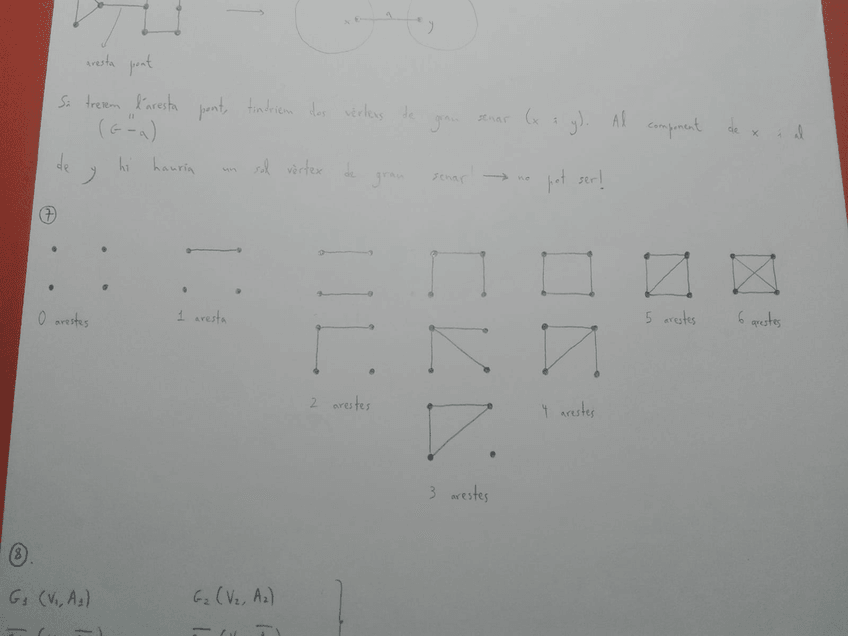 a
x
y
aresta pont
Si traiem l'aresta pont, tindríem dos vèrtexs de grau senar (x i y). Al component de x i al
(G - a)
de y hi hauria un sol vèrtex de grau senar → no pot ser!
7
0 arestes
1 aresta
5 arestes
6 arestes
2 arestes
4 arestes
3 arestes
8.
G1 (V1, A1) G2 (V2, A2)